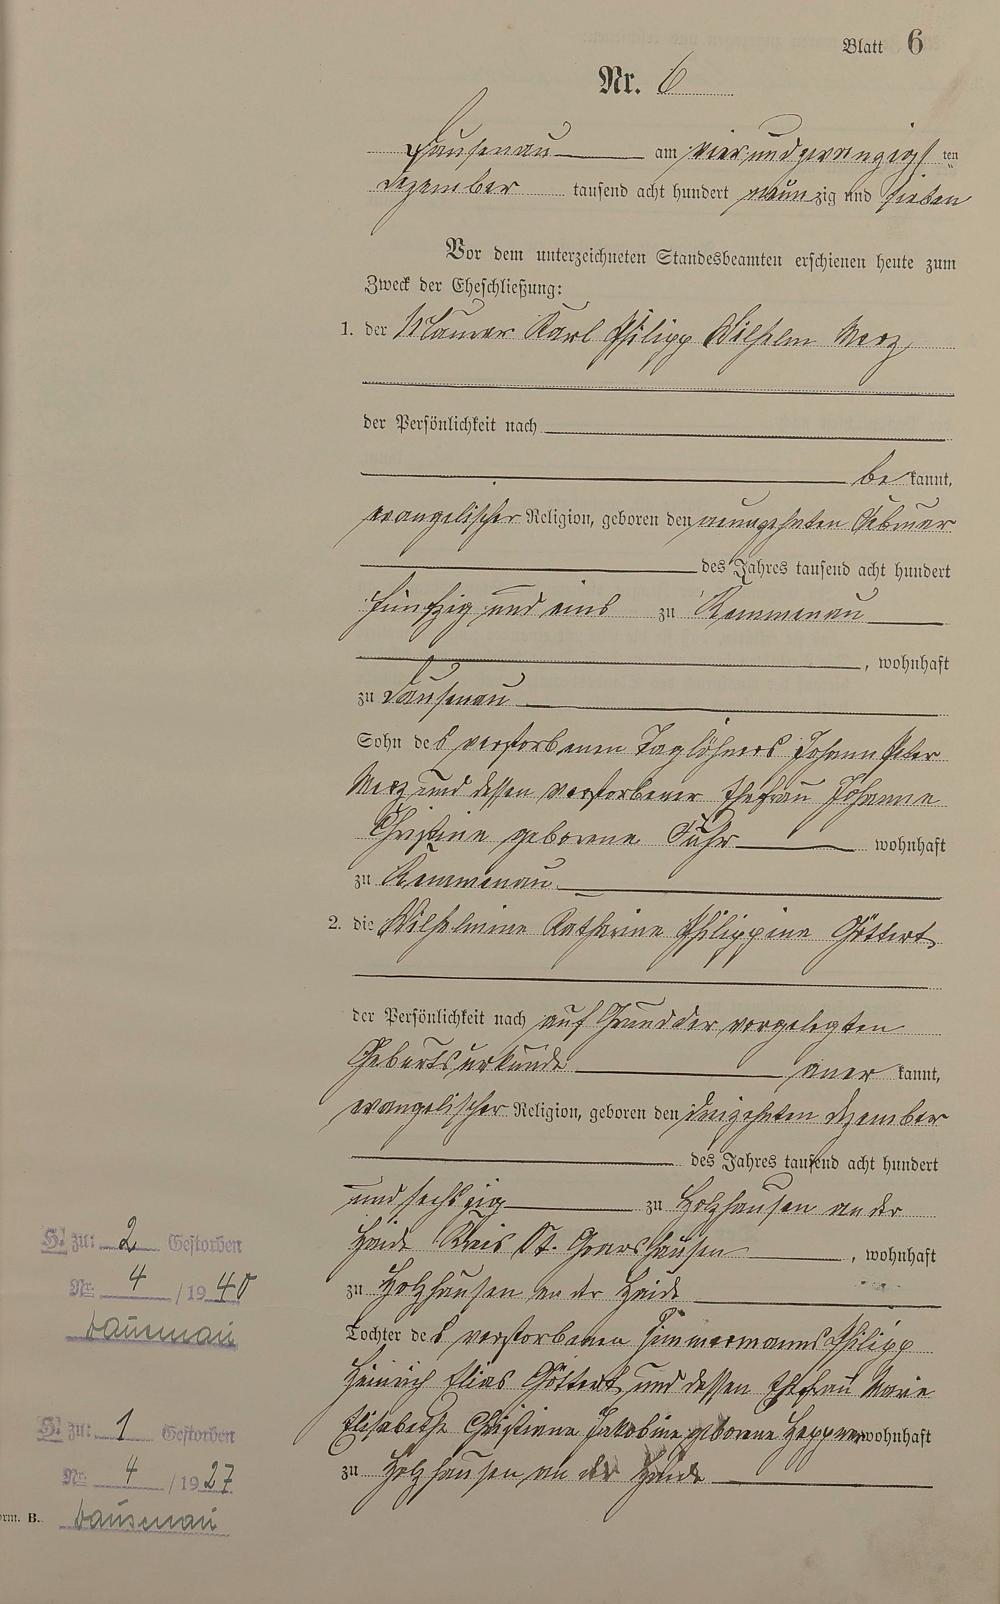 Blatt 6
Nr. 6
Dausenau am vier und zwanzigsten
Dezember tausend acht hundert neunzig und sieben
Vor dem unterzeichneten Standesbeamten erschienen heute zum
Zweck der Eheschließung:
1. der Maurer Karl Philipp Wilhelm Merz
der Persönlichkeit nach
bekannt,
evangelischer Religion, geboren den neunzehnten Februar
des Jahres tausend acht hundert
fünfzig und eins zu Kemmenau
, wohnhaft
zu Dausenau
Sohn des verstorbenen Taglöhners Johann Peter
Merz und dessen verstorbener Ehefrau Johanne
Christine geborene Führ wohnhaft
zu Kemmenau
2. die Wilhelmine Katharine Philippine Göttert
der Persönlichkeit nach auf Grund der vorgelegten
Geburtsurkunde anerkannt,
evangelischer Religion, geboren den dreizehnten Dezember
des Jahres tausend acht hundert
und sechszig zu Holzhausen an der
Haide Kreis St. Goarshausen, wohnhaft
zu Holzhausen an der Haide
Tochter des verstorbenen Zimmermanns Philipp
Heinrich Elias Göttert und dessen Ehefrau Marie
Elisabethe Christiane Jakobine geborene wohnhaft
zu Holzhausen an der Haide
H. zu: 2 Gestorben
Nr. 4 / 1940
Dausenau
H. zu: 1 Gestorben
Nr. 4 / 1927
Dausenau
orm. B.